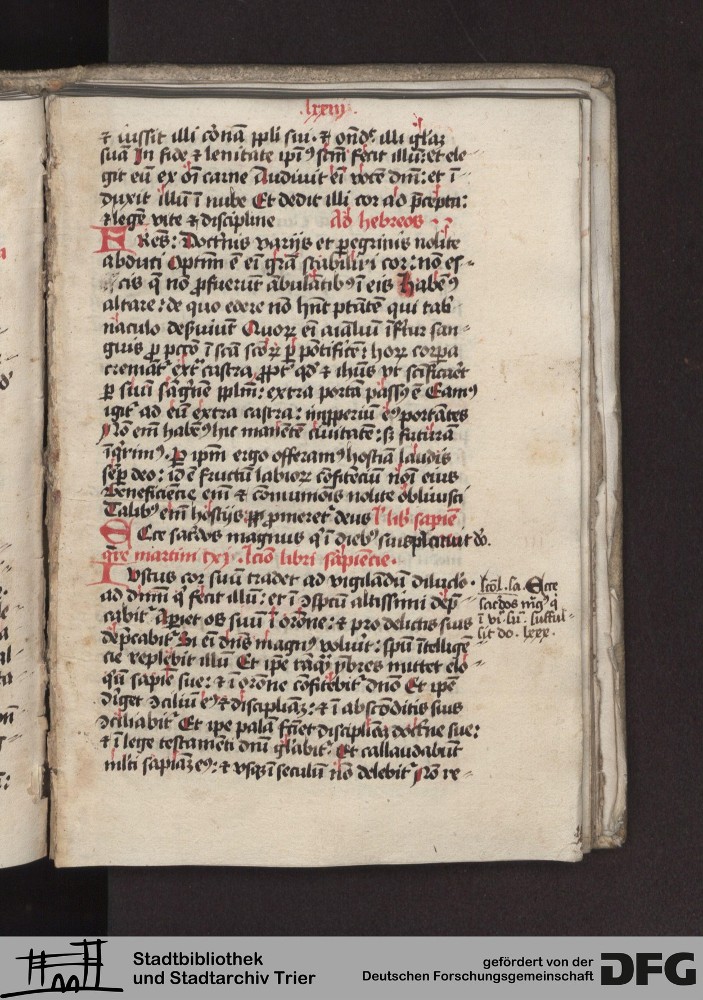 lxxiij
⁊ iussit illi corā ppl̄i sui · ⁊ on̄dꝫ illi glāꝫ
suā In fide ⁊ lenitate ip̄iꝰ sc̄m fecit illū: et ele
git eū ex oī carne Audiuit eī vocē dnī: et ī
duxit illū ī nube Et dedit illi cor ad p̄cepta:
⁊ legē vite ⁊ discipline Ad hebreos
FRes: Doctnis varijs et peregrinis nolite
abduci Optim̄ ē eī grā stabiliri cor: nō es=
cis q̄ nō ꝓfuerūt ābulātibꝰ ī eis Habemꝰ
altare: de quo edere nō hn̄t ptātē qui tab
naculo deßuiūt Quoꝝ eī aīaliū īfłur san=
guis ꝓ pctō ī scā scōꝝ p̱ pōtificē: hoꝝ corpa
cremāt̉ ext̉ castra ꝓpt̉ qd̓ ⁊ ihūs vt scīficaret
p̱ suū sāgnē pplm̄: extra portā passꝰ ē Eamꝰ
igit̉ ad eū extra castra: īꝓperiū eꝰ portātes
Nō em̄ habemꝰ hic manētē ciuitatē: sꝫ futurā
īq̄rimꝰ. P̱ ipm̄ ergo offeramꝰ hostiā laudis
semp̱ deo: id ē fructū labioꝝ cōfitēciū nōī eius
Beneficiēcie em̄ ⁊ cōmunōis nolite obliuisci
Talibꝰ em̄ hostijs ꝓmeret̉ deus l' lib̉ sapiē
ECce sac̓dos magnus q̉ ī diebꝰ suis placuit dō.
Ieꝛō libri sapiencie.
IVstus cor suū tradet ad vigilādū diluclo ·
ad dnm̄ q̉ fecit illū: et ī ɔspcū altissimi dep̄
cabit̉ Apiet os suū ī orōne: ⁊ pro delictis suis
dep̄cabit̉ Si eī dn̄s magnꝰ voluit̉: spū ītelligē
cie replebit illū Et ip̄e tāq̄ ymbres mittet elo=
q̉a sapiē sue: ⁊ ī orōne cōfitebit̉ dn̄o Et ip̄e
dirget ɔciliū eꝰ ⁊ disciplinā: ⁊ ī abscōditis suis
ɔsiliabit̉ Et ip̄e palā faciet disciplinā doctne sue:
⁊ ī lege testamēti dnī gl̄abit̉ Et collaudabūt
ml̄ti sapiāꝫ eꝰ: ⁊ vsqꝫ ī seculū nō delebit̉ Nō re=
Ecce
sac̓dos mgꝰ q̉
ī vi. sufful
sit do. lxxx.
Stadtbibliothek
und Stadtarchiv Trier
gefördert von der
Deutschen Forschungsgemeinschaft
DFG